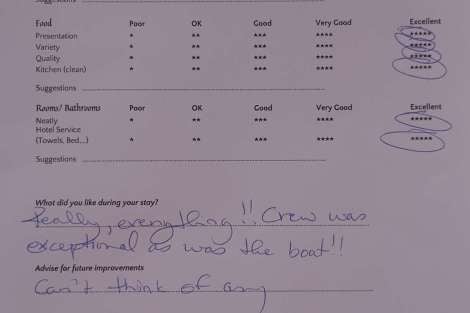 Suggestions
Food Poor OK Good Very Good Excellent
Presentation * ** *** **** *****
Variety * ** *** **** *****
Quality * ** *** **** *****
Kitchen (clean) * ** *** **** *****
Suggestions
Rooms/ Bathrooms Poor OK Good Very Good Excellent
Neatly * ** *** **** *****
Hotel Service
(Towels, Bed...) * ** *** **** *****
Suggestions
What did you like during your stay?
Really, everything!! Crew was
exceptional as was the boat!!
Advise for future improvements
Can't think of any